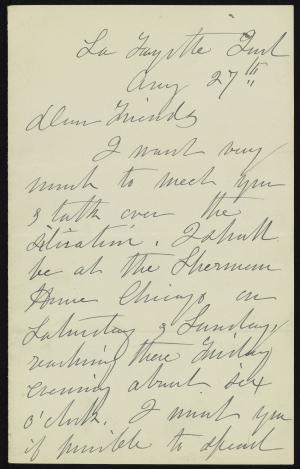 La Fayette Ind
Aug 27th
Dear Friends
I want very
much to meet you
& talk over the
situation. I shall
be at the Sherman
House Chicago on
Saturday & Sunday,
reaching there Friday
evening about six
o'clock. I want you
if possible to spend